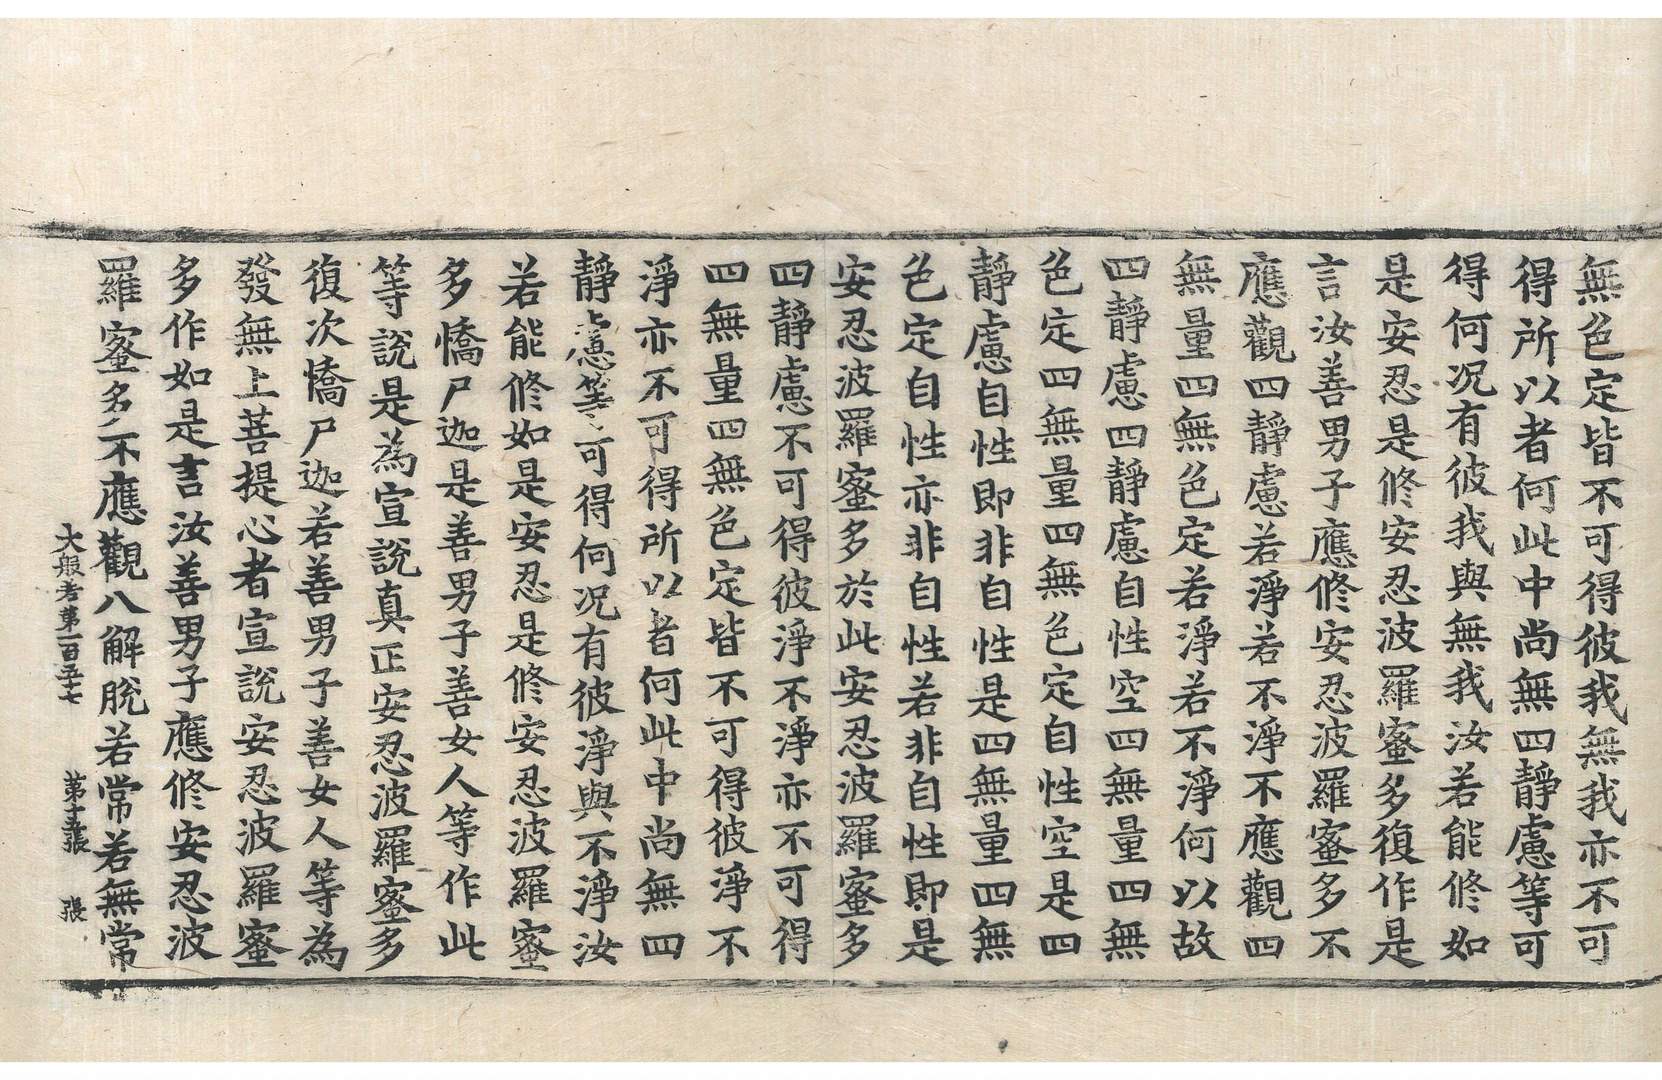 無色定皆不可得彼我無我亦不可
得所以者何此中尚無四靜慮等可
得何況有彼我與無我汝若能修如
是安忍是修安忍波羅蜜多復作是
言汝善男子應修安忍波羅蜜多不
應觀四靜慮若淨若不淨不應觀四
無量四無色定若淨若不淨何以故
四靜慮四靜慮自性空四無量四無
色定四無量四無色定自性空是四
靜慮自性即非自性是四無量四無
色定自性亦非自性若非自性即是
安忍波羅蜜多於此安忍波羅蜜多
四靜慮不可得彼淨不淨亦不可得
四無量四無色定皆不可得彼淨不
淨亦不可得所以者何此中尚無四
靜慮等可得何況有彼淨與不淨汝
若能修如是安忍是修安忍波羅蜜
多憍尸迦是善男子善女人等作此
等說是為宣說真正安忍波羅蜜多
復次憍尸迦若善男子善女人等為
發無上菩提心者宣說安忍波羅蜜
多作如是言汝善男子應修安忍波
羅蜜多不應觀八解脫若常若無常
大般若第一百五十七 第十五張 張